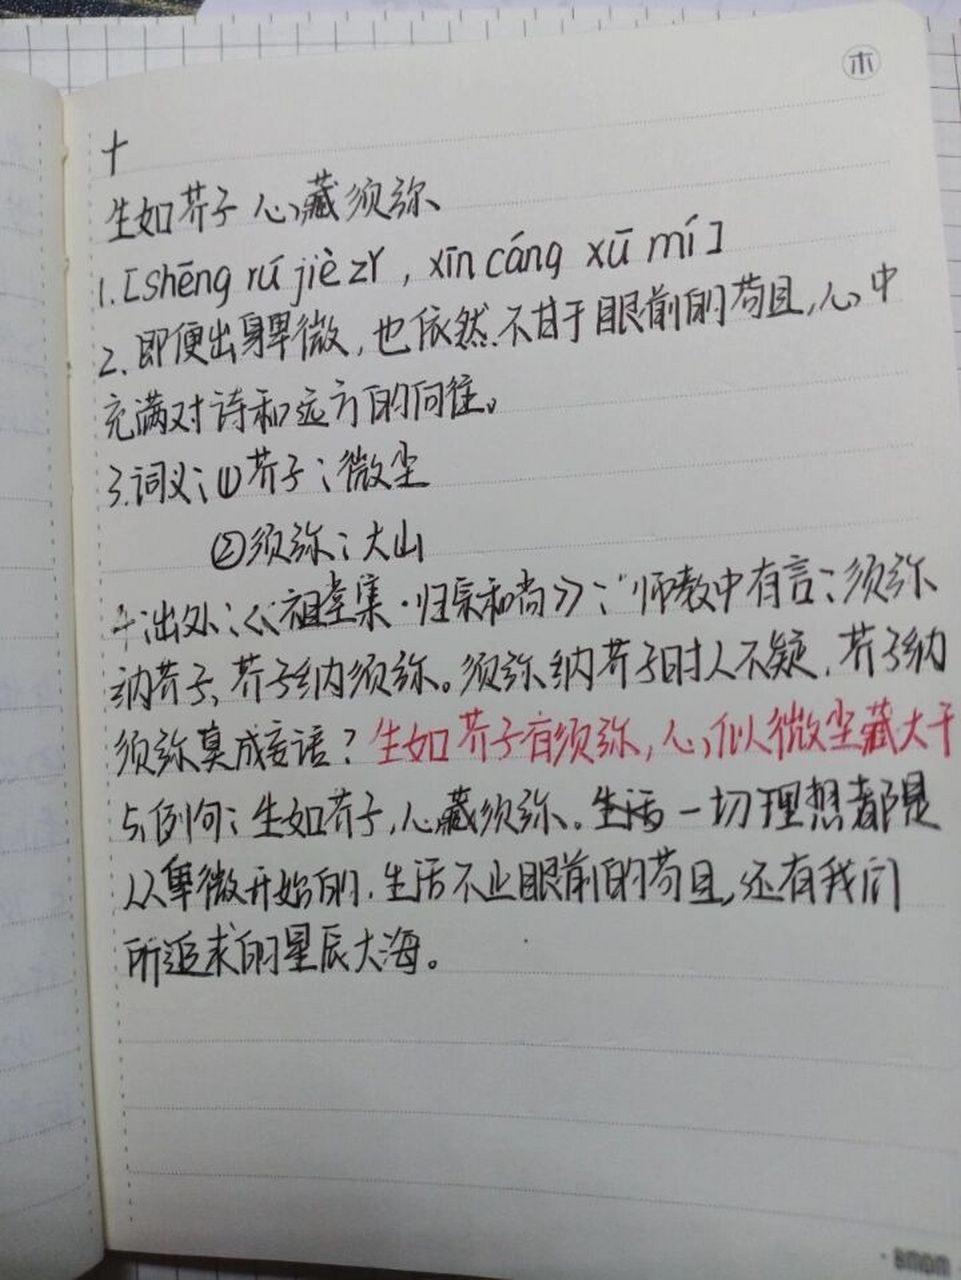 木
十
生如芥子 心藏须弥、
1.[shēng rú jiè zǐ , xīn cáng xū mí]
2.即便出身卑微,也依然.不甘于眼前的苟且,心中
充满对诗和远方的向往。
3.词义:①芥子:微尘
②须弥:大山
4:出处:《祖堂集·归宗和尚》:"师教中有言:须弥
纳芥子,芥子纳须弥。须弥纳芥子时人不疑,芥子纳
须弥莫成妄语?生如芥子有须弥,心似微尘藏大千
5.例句:生如芥子,心藏须弥。生活一切理想都是
从卑微开始的.生活不止眼前的苟且,还有我们
所追求的星辰大海。